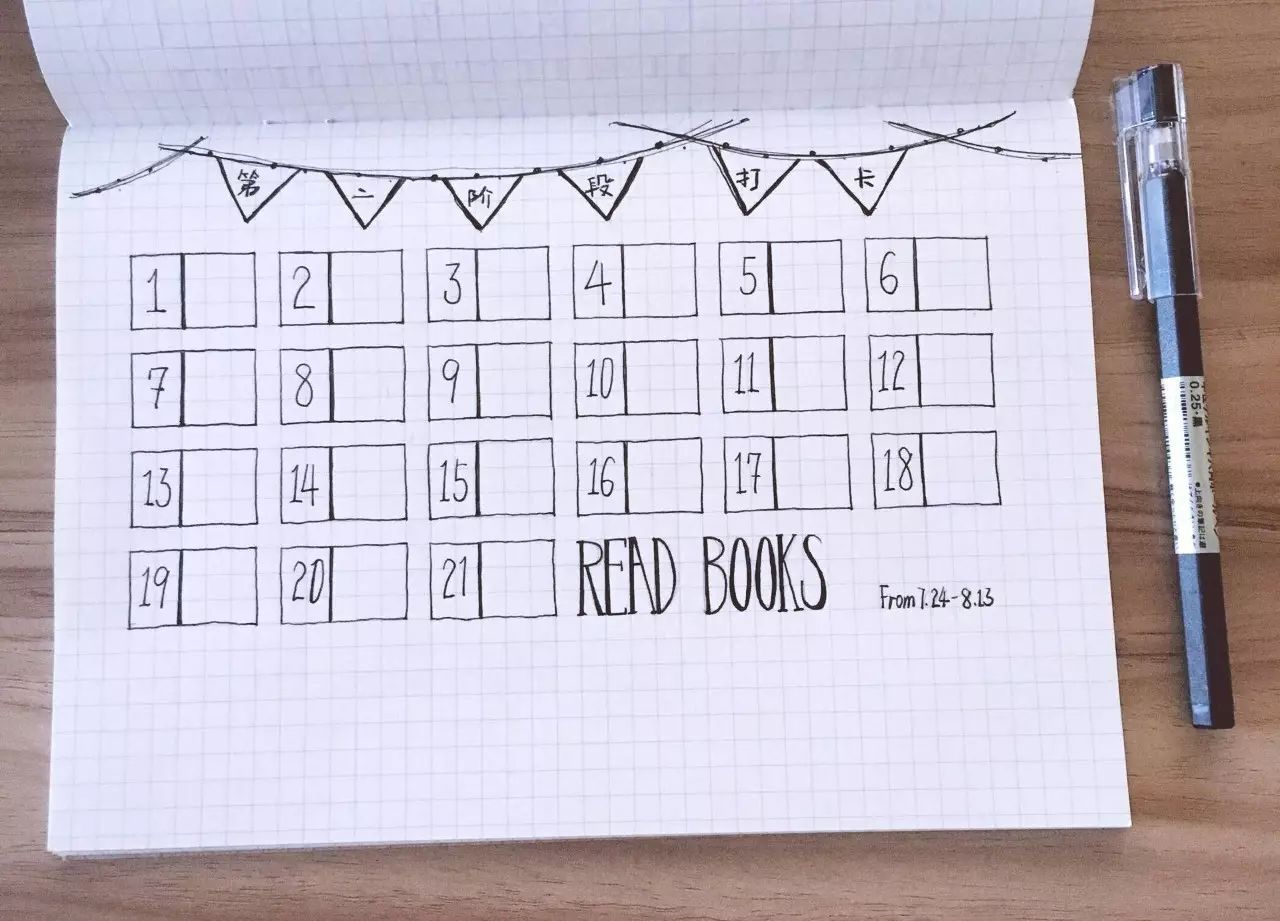 第二阶段打卡
1 2 3 4 5 6
7 8 9 10 11 12
13 14 15 16 17 18
19 20 21 READ BOOKS From 7.24-8.13
0.25・黒